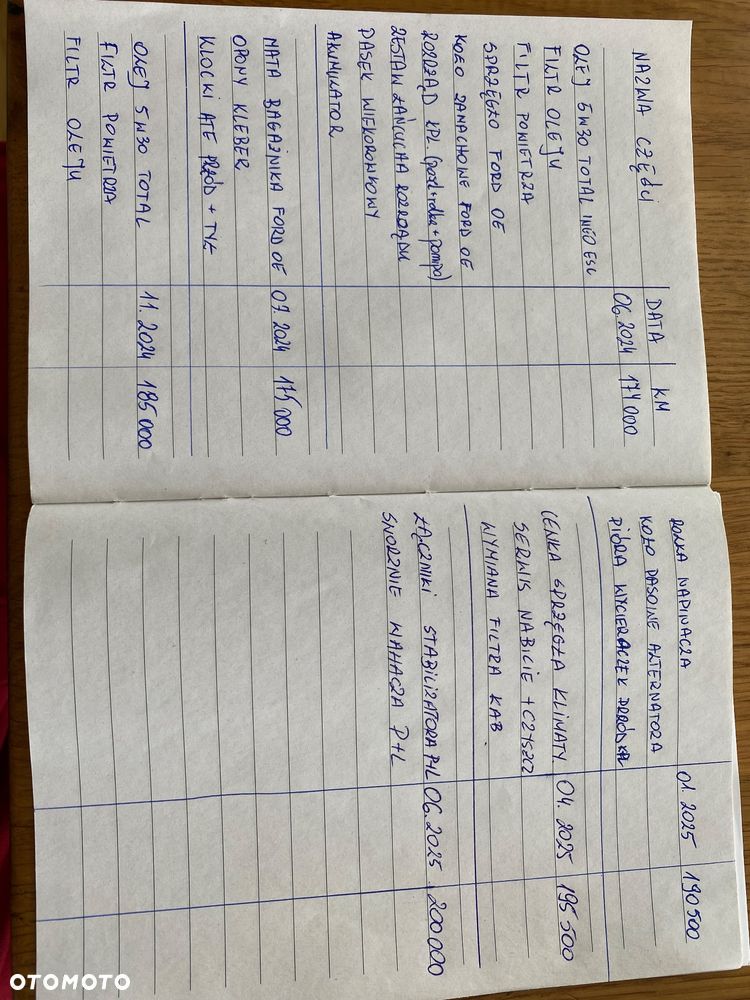 NAZWA CZĘŚCI DATA KM
OLEJ 5W30 TOTAL INEO ESC 06.2024 174 000
FILTR OLEJU
FILTR POWIETRZA
SPRZĘGŁO FORD OE
KOŁO ZAMACHOWE FORD OE
ROZRZĄD KPL (pasek+rolka+pompa)
ZESTAW ŁAŃCUCHA ROZRZĄDU
PASEK WIELOROWKOWY
AKUMULATOR
MATA BAGAŻNIKA FORD OE 07.2024 175 000
OPONY KLEBER
KLOCKI ATE PRZÓD + TYŁ
OLEJ 5W30 TOTAL 11.2024 185 000
FILTR POWIETRZA
FILTR OLEJU
ROLKA NAPINACZA 01.2025 190 500
KOŁO PASOWE ALTERNATORA
PIÓRA WYCIERACZEK
CEWKA SPRZĘGŁA KLIMATY 04.2025 195 500
SERWIS NABICIE + CZYSZCZ
WYMIANA FILTRA KAB.
ŁĄCZNIKI STABILIZATORA P+L 06.2025 200 000
SWORZNIE WAHACZA P+L
OTOMOTO